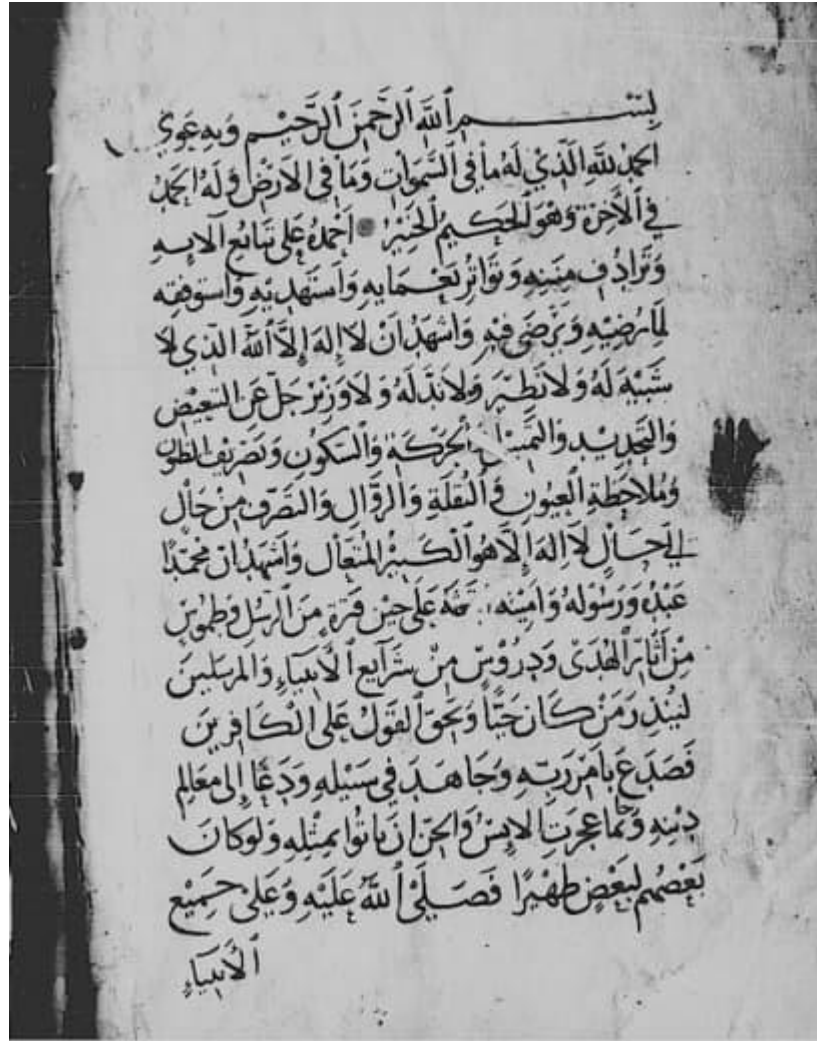 بِسْمِ ٱللَّهِ ٱلرَّحْمَنِ ٱلرَّحِيْمِ وَبِهِ عَوْنِي
الحَمْدُ لِلَّهِ الَّذِيْ لَهُ مَا فِي السَّمَوَاتِ وَمَا فِي الاَرْضِ وَلَهُ الحَمْدُ
فِي الْأَخِرَةِ وَهُوَ الْحَكِيْمُ الْخَبِيْرُ اَحْمَدُهُ عَلَى تَتَابُعِ آلَايِهِ
وَتَرَادُفِ مِنَنِهِ وَتَوَاتُرِ نَعْمَايِهِ وَاَسْتَهْدِيْهِ وَاَسْتَوْفِقُهُ
لِمَا يُرْضِيْهِ وَيَرْضَى فِيْهِ وَاَشْهَدُ اَنْ لَا إِلهَ إِلَّا ٱللَّهُ الَّذِي لَا
شَبِيْهَ لَهُ وَلَا نَظِيْرَ وَلَا نِدَّ لَهُ وَلَا وَزِيْرَ جَلَّ عَنِ التَّبْعِيْضِ
وَالتَّحْدِيْدِ وَالتَّمْيِيْزِ الْحَرَكَةِ وَالسُّكُوْنِ وَتَصْرِيْفِ الظُّنُوْنِ
وَمُلَاحَظَةِ الْعُيُوْنِ وَالنُّقْلَةِ وَالزَّوَالِ وَالتَّصَرُّفِ مِنْ حَالٍ
إِلَى حَالٍ لَا اِلهَ إِلَّا هُوَ الْكَبِيْرُ المُتَعَالِ وَاَشْهَدُ اَنَّ مُحَمَّدًا
عَبْدُهُ وَرَسُوْلُهُ وَاَمِيْنُه عَلَى حِيْنِ فَتْرَةٍ مِنَ الرُّسُلِ وَطُمُوْسٍ
مِنْ آثَارِ الْهُدَى وَدُرُوْسٍ مِنْ شَرَآيِعِ الْأَنْبِيَاءِ وَالمُرْسَلِيْنَ
لِيُنْذِرَ مَنْ كَانَ حَيًّا وَيَحِقَّ القَوْلُ عَلَى الْكَافِرِيْنَ
فَصَدَعَ بِاَمْرِ رَبِّهِ وَجَاهَدَ فِي سَبِيْلِهِ وَدَعَا إِلَى مَعَالِمِ
دِيْنِهِ عَجزَتِ الاِنْسُ وَالجِنُّ اَنْ يَاتُوا بِمِثْلِهِ وَلَوْ كَانَ
بَعْضُهُم لِبَعْضٍ ظَهِيْرًا فَصَلَّى ٱللَّهُ عَلَيْهِ وَعَلَى جَمِيْعِ
الْأَنْبِيَاءِ